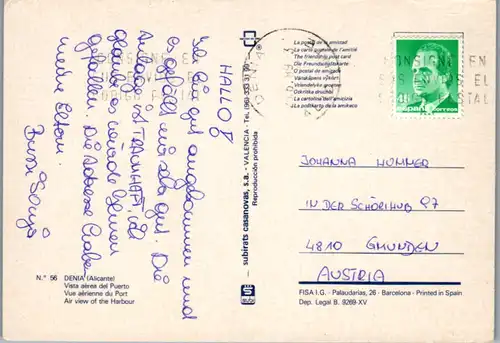 HALLO!
Ich bin gut angekommen und
es gefällt mir sehr gut. Die
Anlage ist TRAUMHAFT, ich
glaube es würde Ihnen
gefallen. Die Adresse habe
meine Eltern.
Bussi Sonja
N.º 56 DENIA (Alicante)
Vista aérea del Puerto
Vue aérienne du Port
Air view of the Harbour
subirats casanovas, s.a. - VALENCIA - Tel. (96)
Reproducción prohibida
La postal de la amistad
La carte postale de l'amitié
The friendship post card
Die Freundschaftskarte
O postal de amizade
La cartolina dell'amicizia
La postkarto de la amikaro
DENIA
CONSIGNE EN
SUS ENVIOS EL
CODIGO POSTAL
España
correos
JOHANNA HUMMER
IN DER SCHÖRIHUB 27
4810 GMUNDEN
AUSTRIA
FISA I.G. - Palaudarias, 26 - Barcelona - Printed in Spain
Dep. Legal B. 9269-XV